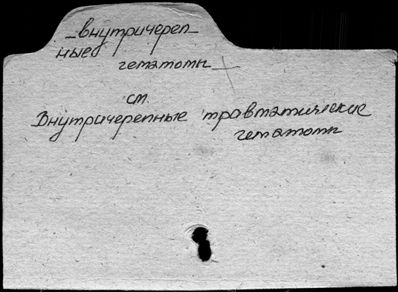 внутричереп-
ные
гематомы
см.
Внутричерепные травматические
гематомы